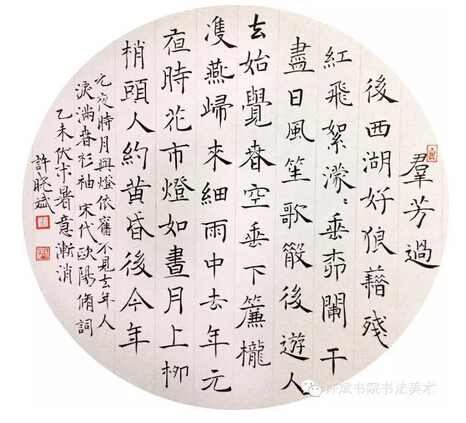 羣芳過
後西湖好狼藉殘
紅飛絮濛〻垂柳闌干
盡日風笙歌散後遊人
去始覺春空垂下簾櫳
雙燕歸來細雨中去年元
夜時花市燈如晝月上柳
梢頭人約黄昏後今年
元夜時月與燈依舊不見去年人
淚滿春衫袖 宋代歐陽脩詞
乙未伏中暑意漸消
許晓斌
许斌书院书法美术